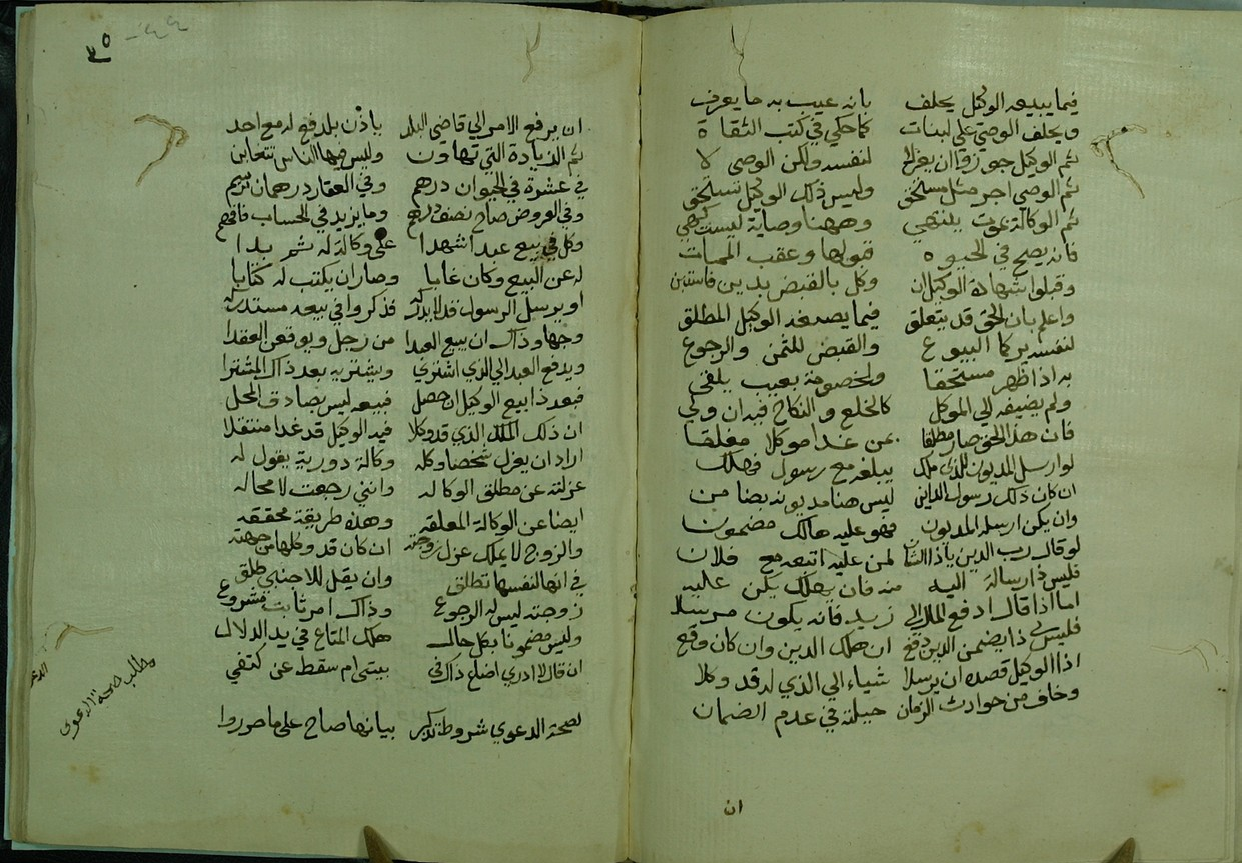 فيما يبيعه الوكيل يحلف بانه عيب به ما يعرف
ويحلف الوصي على لبنات كما حكي في كتب الثقاة
ثم الوكيل جوزوا ان يعزلا لنفسه ولكن الوصي لا
ثم الوصي اجر مثل مستحق وليس ذلك الوكيل يستحق
ثم الوكالة بموت ينتهي وههنا وصاية ليست كهي
فانه يصح في الحيوه قبولها وعقب الممات
وقبلوا شهادة الوكيل ان وكل بالقبض بدين فاستبن
واعلم بان الحق قد يتعلق فيما يصنعه الوكيل المطلق
لنفسه يركا البيوع والقبض للثمن والرجوع
به اذا ظهر مستحقا ولخصومة بعيب يلقى
ولم يضيفه الي الموكل كالخلع والنكاح
فان هذا الحق صار مطلقا بمن غدا موكلا معلقا
لو ارسل المديون للذي ملك يبلغ مع رسول فهلك
ان كان ذلك رسول الداين ليس هنا مديونه بضامن
وان يكن ارسله المديون فهو عليه هالك مضمون
لو قال رب الدين لمن عليه ابتعه مع فلان
فليس ذا رسالة اليه منه فان يهلك يكن عليه
اما اذا قال ادفع المال الي زيد فانه يكون مرسلا
فليس ذا يضمن الدين دفع ان هلك الدين وان كان وقع
اذا الوكيل قصده ان يرسلا شياء الي الذي له قد وكلا
وخاف من حوادث الزمان حيلته في عدم الضمان
ان
٣٥
ان يرفع الامر الي قاضي البلد ياذن بلدفع له مع احد
ثم الزيادة التي تهاون وليس فيها الناس تتغابن
في عشرة في الحيوان درهم وفي العقار درهمان ترسم
وفي العروض صاح نصف درهم وما يزيد في الحساب فافهم
وكل في بيع عبد اشهدا على وكالة له ثم بدا
له عن البيع وكان غايبا وصار ان يكتب له كتابا
او يرسل الرسول قد لا يدركه فذكروا في بيعه مستدركه
وجها وذاك ان يبيع العبدا من رجل ويوقعن العقدا
ويدفع العبد الي الذي اشتري ويشتريه بعد ذاك المشترا
فبعد ذا بيع الوكيل ان حصل فبيعه ليس يصادف المحل
ان ذلك الملك الذي قد وكلا فيه الوكيل قد غدا منتقلا
اراد ان يعزل شخصا وكله وكالة دورية يقول له
عزلته عن مطلق الوكاله وانني رجعت لا محاله
ايضا عن الوكالة المعلقه وهذه طريقة محققه
والزوج لا يملك عزل زوجته ان كان قد وكلها من جهته
في انها لنفسها تطلق وان يقل للاجنبي طلق
زوجته ليس له الرجوع وذاك امر ثابت مشروع
وليس مضمونا بكل حال هلك المتاع في يد الدلال
ان قال لا ادري اضاع ذاك في بيتي ام سقط عن كتفي
لصحة الدعوي شروط تذكر بيانها صاح على ما صوروا
مطلب صحة الدعوى